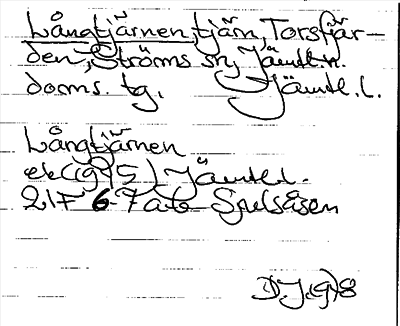 Långtjärnen, tjärn, Torsfjär-
den, Ströms sn, Jämtl. n.
doms. tg. Jämtl. l.
Långtjärnen
ek (1975) Jämtl l.
21F 6-7 a-b Sjulsåsen
D.J. 1978